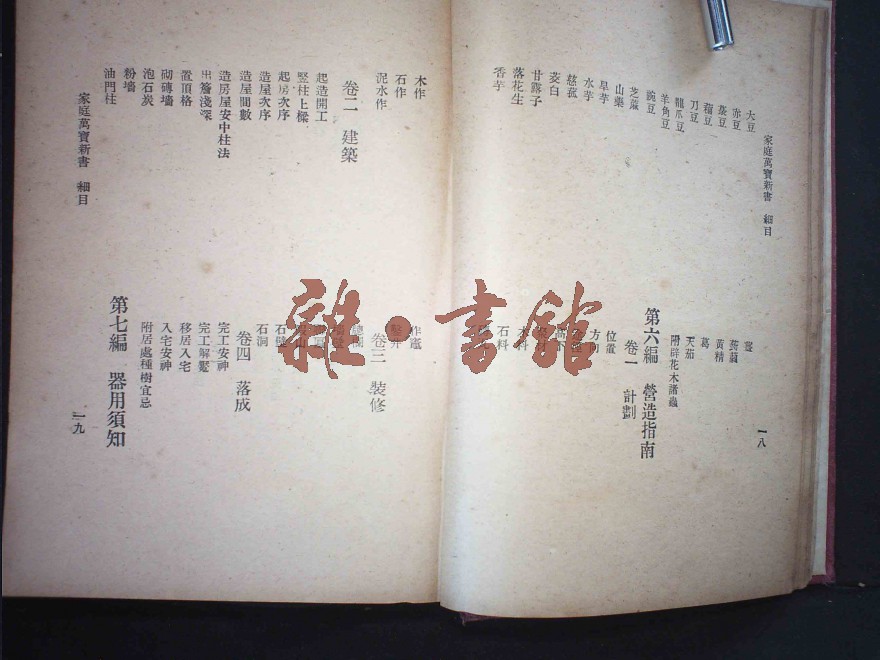 家庭萬寶新書 細目
一八
大豆
赤豆
蠶豆
稨豆
刀豆
龍爪豆
羊角豆
豌豆
芝蔴
山藥
旱芋
水芋
慈菰
茭白
甘露子
落花生
香芋
薑
蒟蒻
黃精
葛
天茄
附辟花木諸蟲
第六編 營造指南
卷一 計劃
位置
方向
木料
石料
木作
石作
泥水作
卷二 建築
起造開工
竪柱上樑
起房次序
造屋次序
造屋間數
造房屋安中柱法
出簷淺深
置頂格
砌磚墻
泡石炭
粉墻
油門柱
作竈
鑿井
卷三 裝修
石洞
卷四 落成
完工安神
完工解鬟
移居入宅
入宅安神
附居處種樹宜忌
第七編 器用須知
家庭萬寶新書 細目
一九
雜·書館